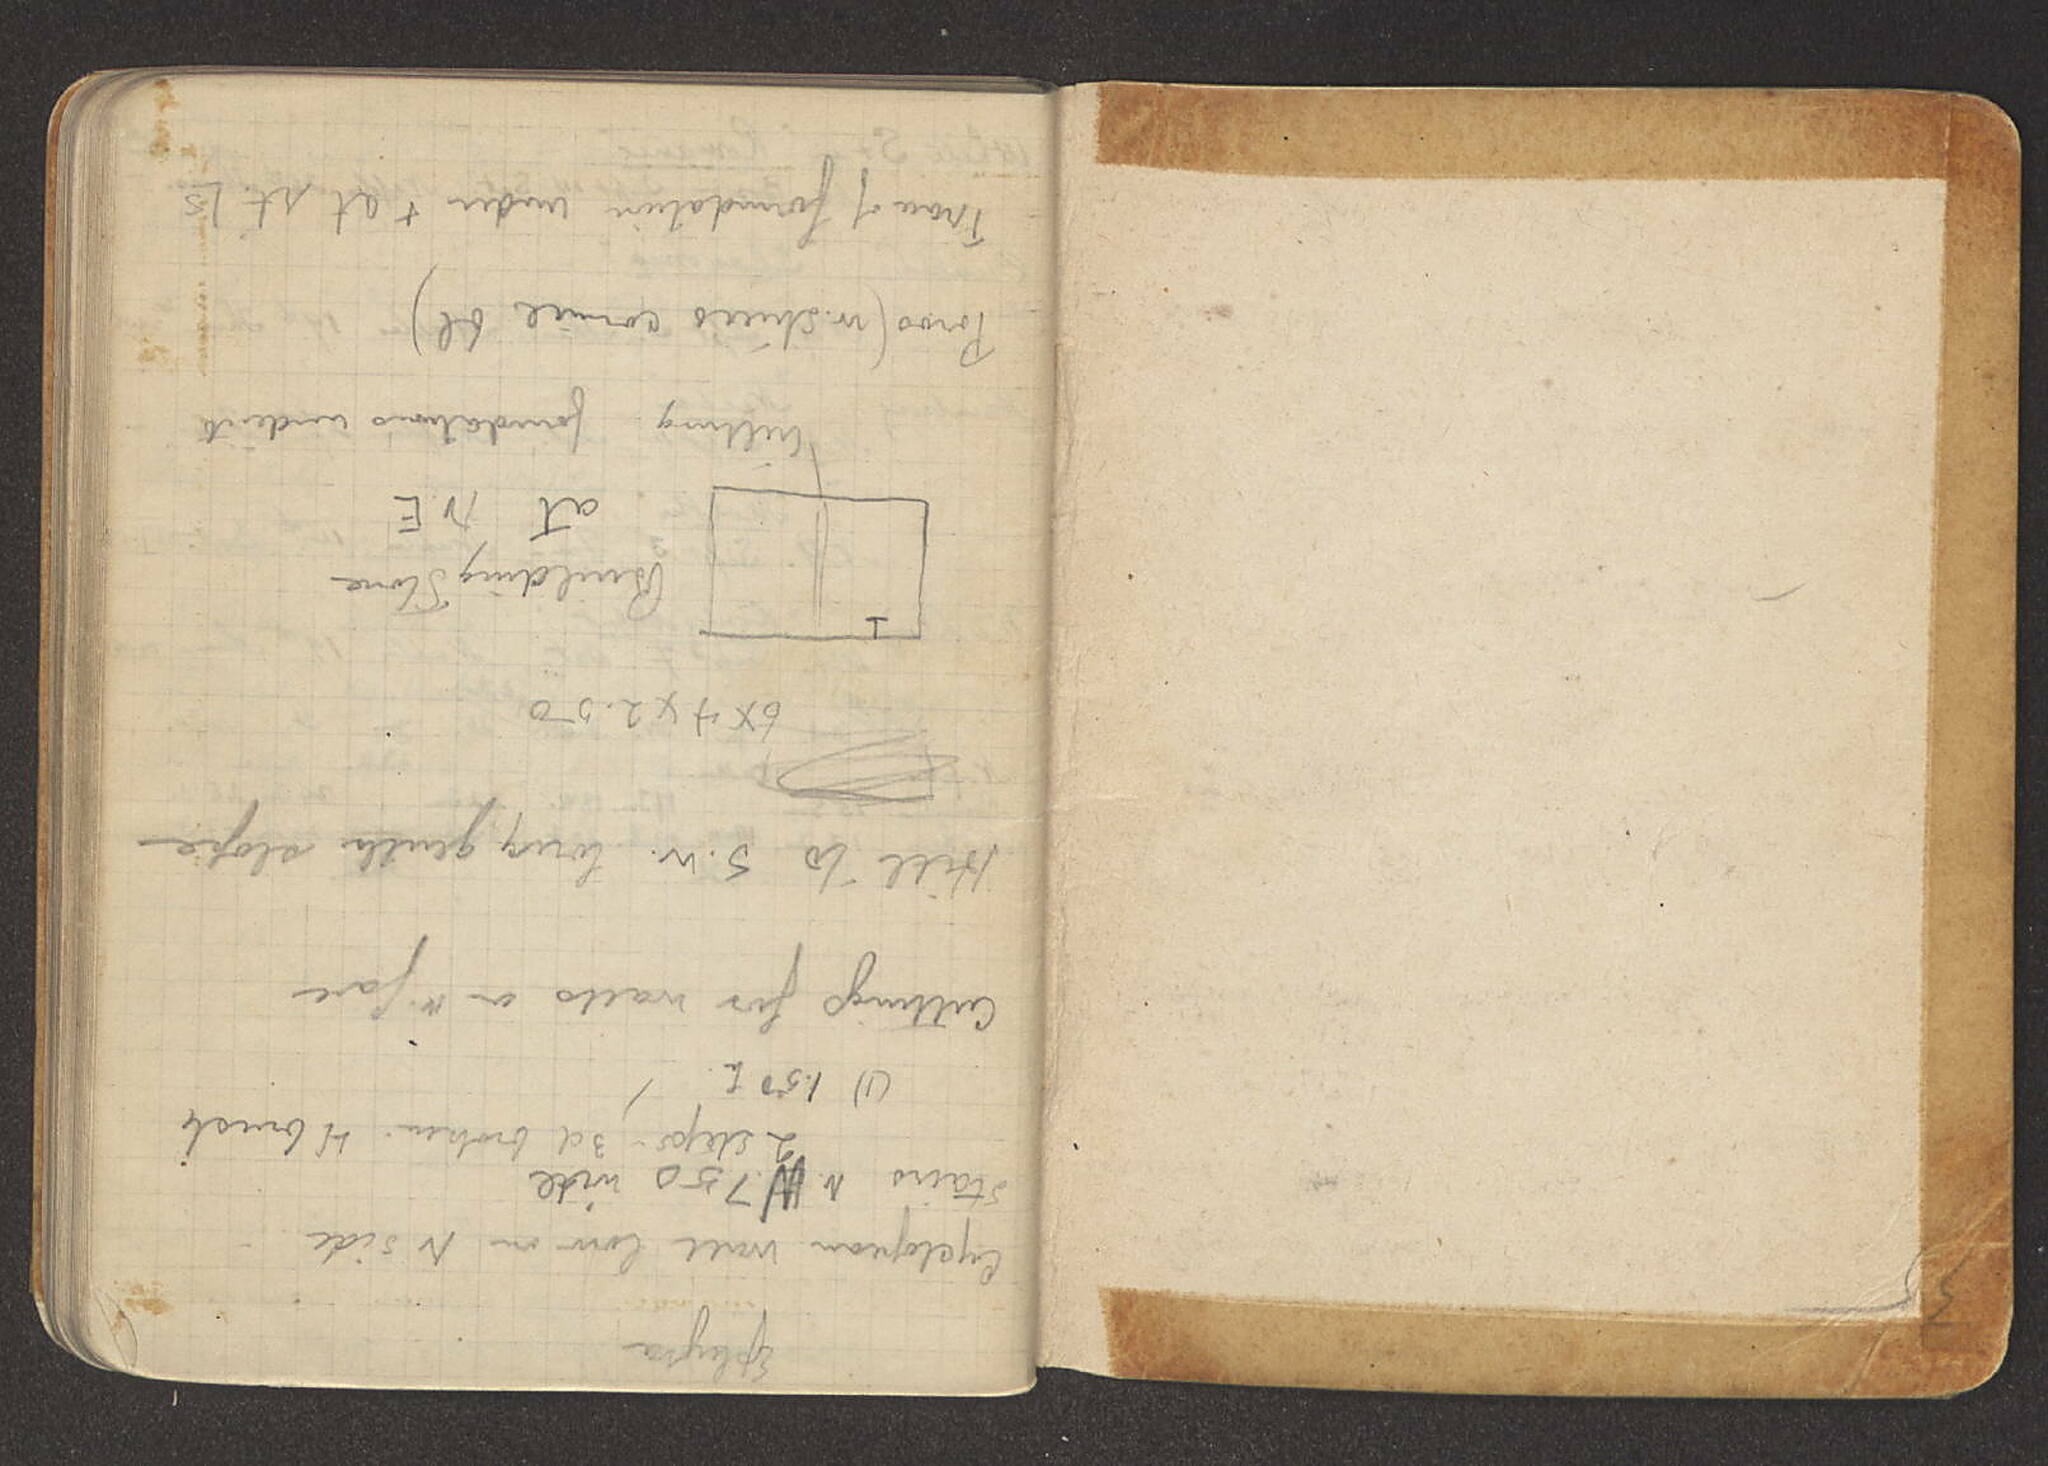 Ephyra
Cyclopean wall low on N side
Stairs N.W 750 wide
2 steps - 3d broken.
(1) 1.50 L.
Cuttings for walls on W. face
Hill to S.W. long gentle slope
6 x 4 x 2.50
I
Building Stone
at N.E
Cutting foundations under it
Poros (w. stucco cornice bl)
Trace of foundation under + at st.